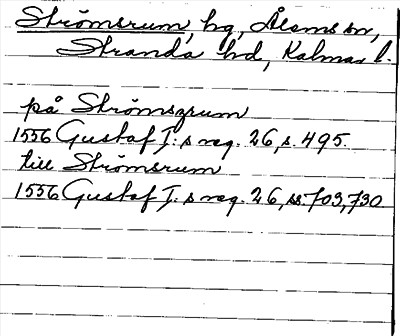 Strömsrum, hg, Ålems sn,
Stranda hd, Kalmar l.
på Strömsgrum
1556 Gustaf I:s reg. 26, s. 495.
till Strömsrum
1556 Gustaf I:s reg. 26, ss. 703, 730